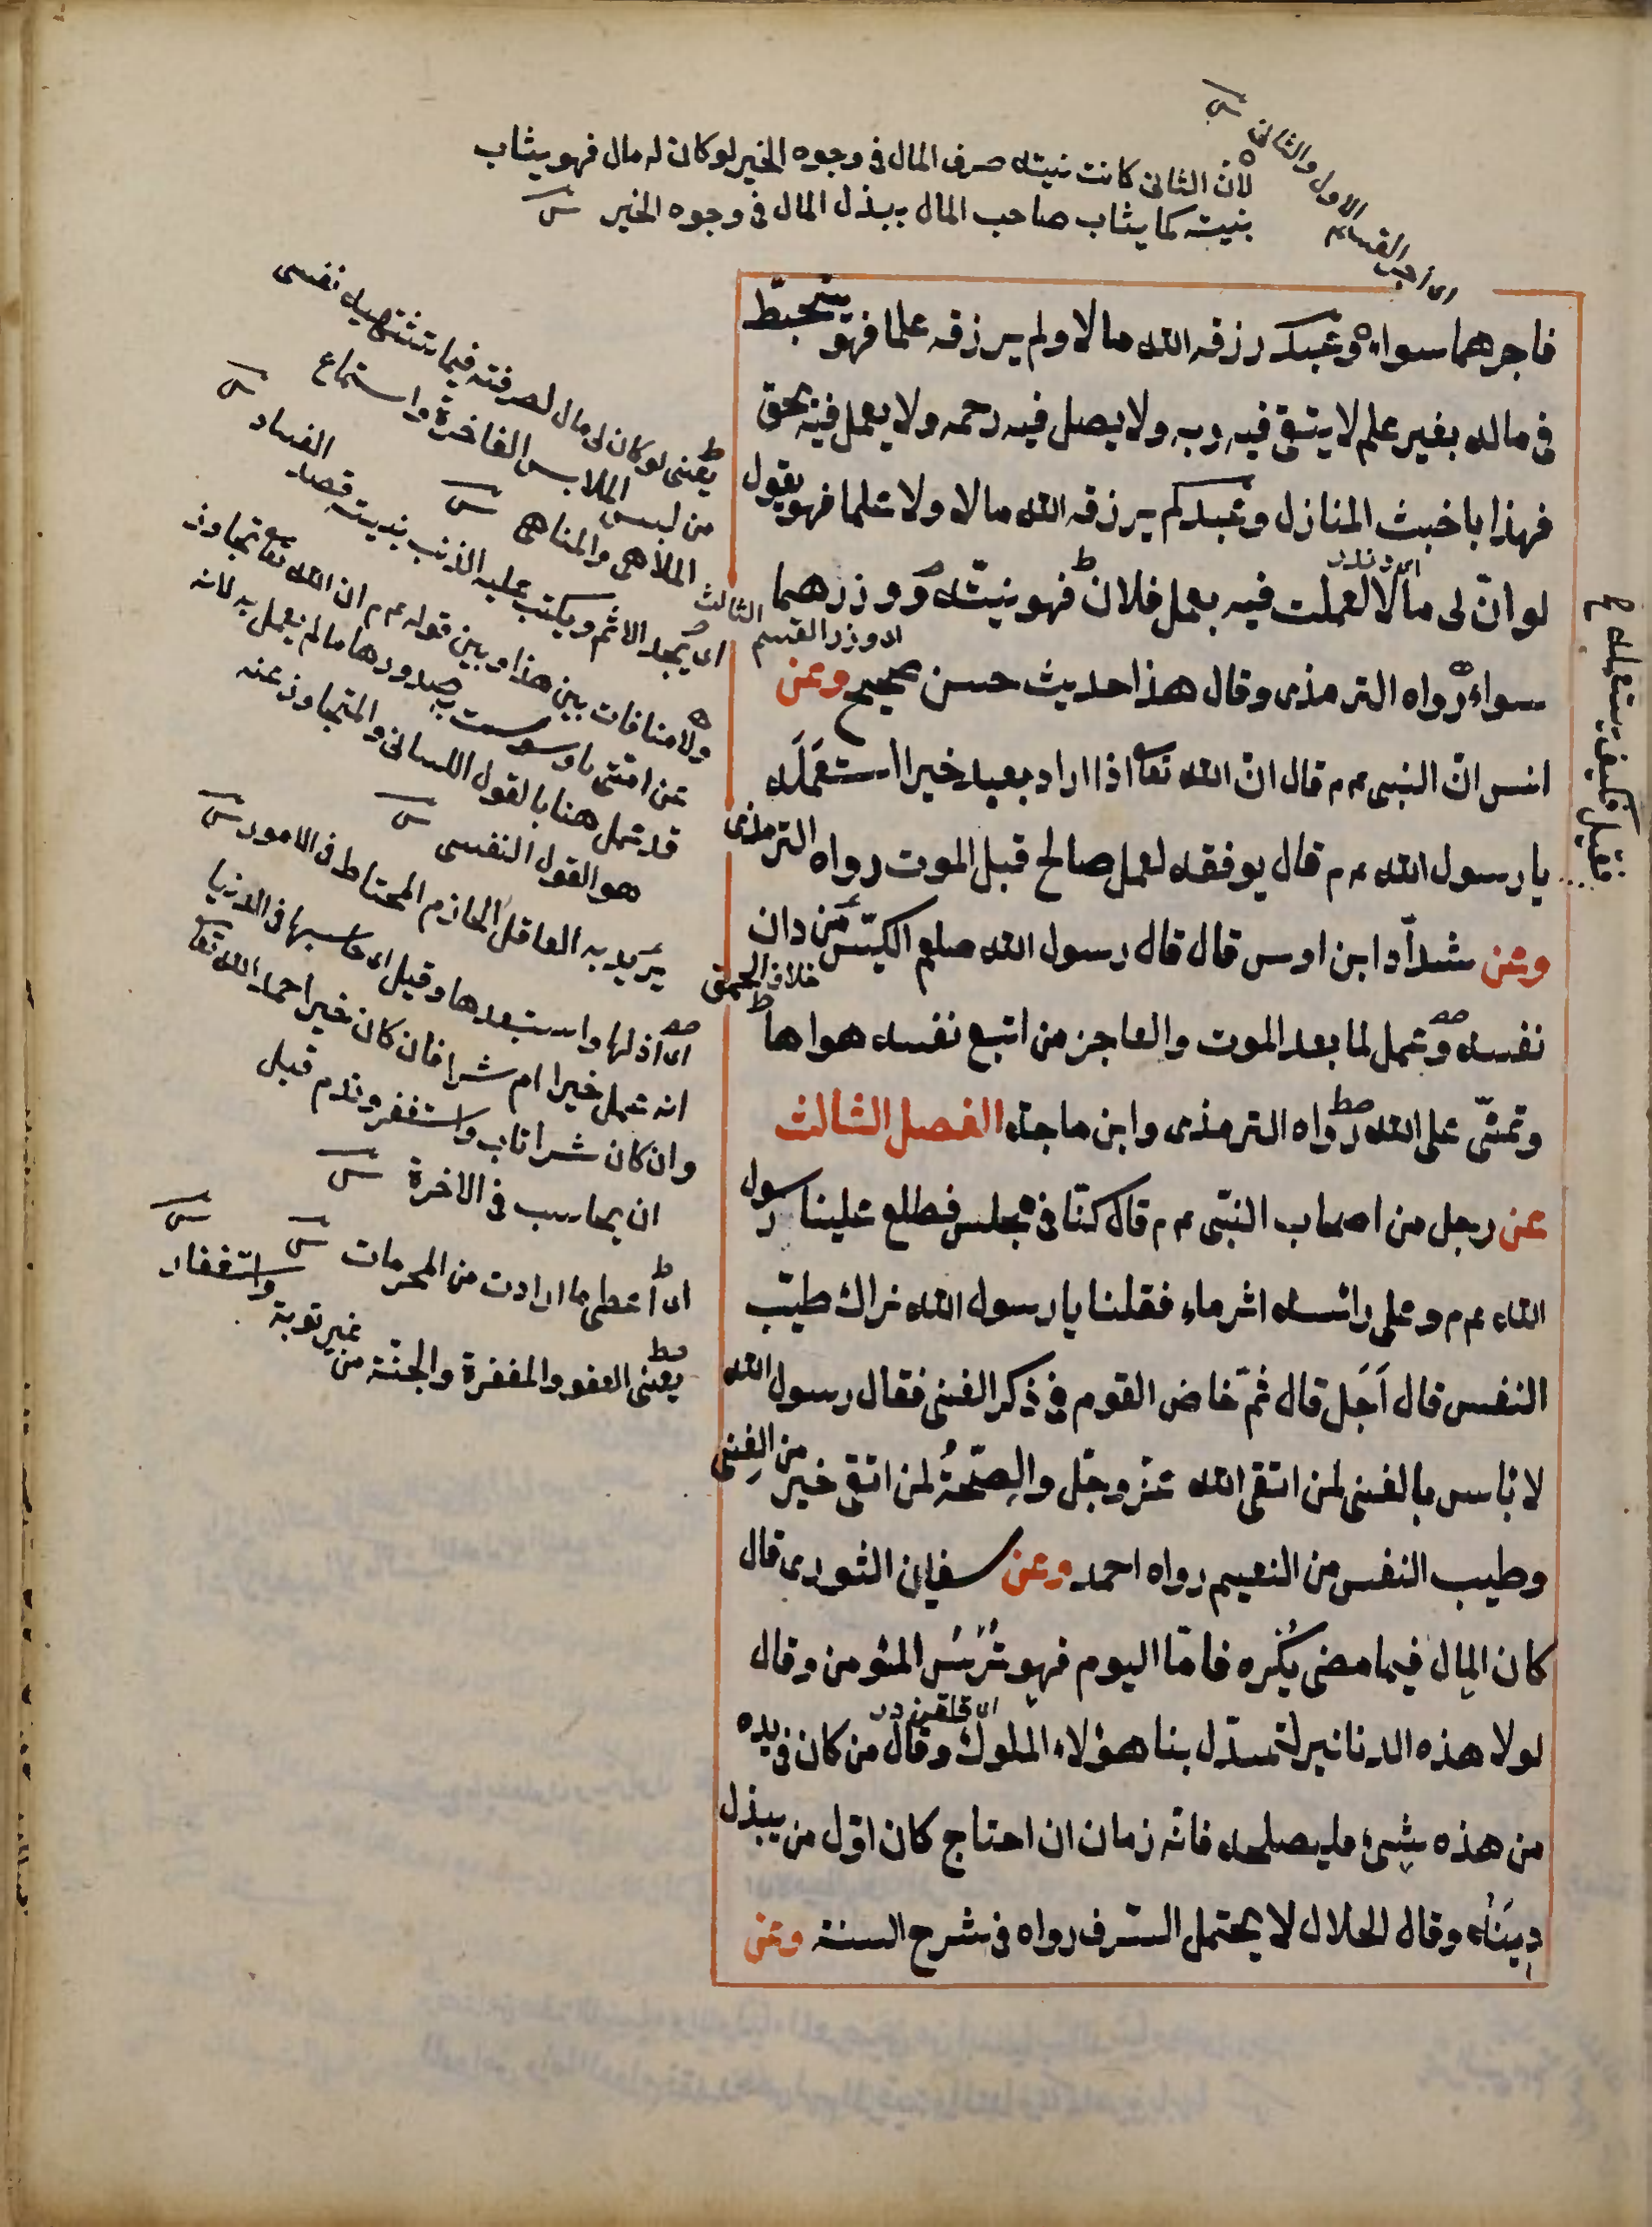 اى اجر القسم الاول والثانى
لان الثانى كانت نيته صرف المال فى وجوه الخير لو كان له مال فهو يثاب
بنيته كما يثاب صاحب المال ببذل المال فى وجوه الخير
فاجرهما سواء وعبد رزقه الله مالا ولم يرزقه علما فهو يتخبط
فى ماله بغير علم لا يتقى فيه ربه ولا يصل فيه رحمه ولا يعمل فيه بحق
فهذا باخبث المنازل وعبد لم يرزقه الله مالا ولا علما فهو يقول
لو انّ لى مالا لعملت فيه بعمل فلان فهو نيتّه ووزرهما
اى وزر القسم الثالث
سواء رواه الترمذى وقال هذا حديث حسن صحيح وعن
انس انّ النبى عم قال انّ الله تعا اذا اراد بعبد خيرا استعمَلَه
فقيل فكيف يستعمله
يا رسول الله عم قال يوفقه لعمل صالح قبل الموت رواه الترمذى
وعن شدّاد ابن اوس قال قال رسول الله صلعم الكيّس مَن دان
خلاف الحمق
نفسه وعمل لما بعد الموت والعاجز من اتبع نفسه هواها
وتمنّى على الله رواه الترمذى وابن ماجه الفصل الثالث
عن رجل من اصحاب النبّى عم قال كنّا فى مجلس فطلع علينا رسول
الله عم وعلى رائسه اثر ماء فقلنا يا رسول الله نراك طيّب
النفس قال اَجَل قال ثمّ خاض القوم فى ذكر الغنى فقال رسول الله
لا بٔاس بالغنى لمن اتقى الله عزّ وجّل والصِحّةُ لمن اتقى خير من الغِنى
وطيب النفس من النعيم رواه احمد وعن سفيان الثورى قال
كان المال فيما مضى يُكْره فامّا اليوم فهو تُرْسُ المؤمن وقال
لولا هذه الدنانير لتمندّل بنا هؤلاء الملوك وقال من كان فى يده
من هذه شئ فليصلحه فانّه زمان ان احتاج كان اوّل من يبذل
دِينَه وقال الحلال لا يحتمل السّرف رواه فى شرح السنة وعن
يعنى لو كان لى مال لصرفته فيما تشتهيه نفسى
من لبس الملابس الفاخرة واستماع
الملاهى والمناهى
اى يجد الاثم ويكتب عليه الذنب بنيته قصد الفساد
ولا منافات بين هذا وبين قوله عم ان الله تعا تجاوز
عن امتى ما وسوست به صدورها ما لم يعمل به لانه
قد عمل هنا بالقول اللسانى والمتجاوز عنه
هو القول النفسى
يريد به العاقل الحازم المحتاط فى الامور
اى اذلها واستبعدها وقيل اى حاسبها فى الدنيا
انه عمل خيرا ام شرا فان كان خيرا احمد الله تعا
وان كان شرا تاب واستغفر وندم قبل
ان يحاسب فى الاخرة
اى اعطى ما ارادت من المحرمات
يعنى العفو والمغفرة والجنّة من غير توبة واستغفار